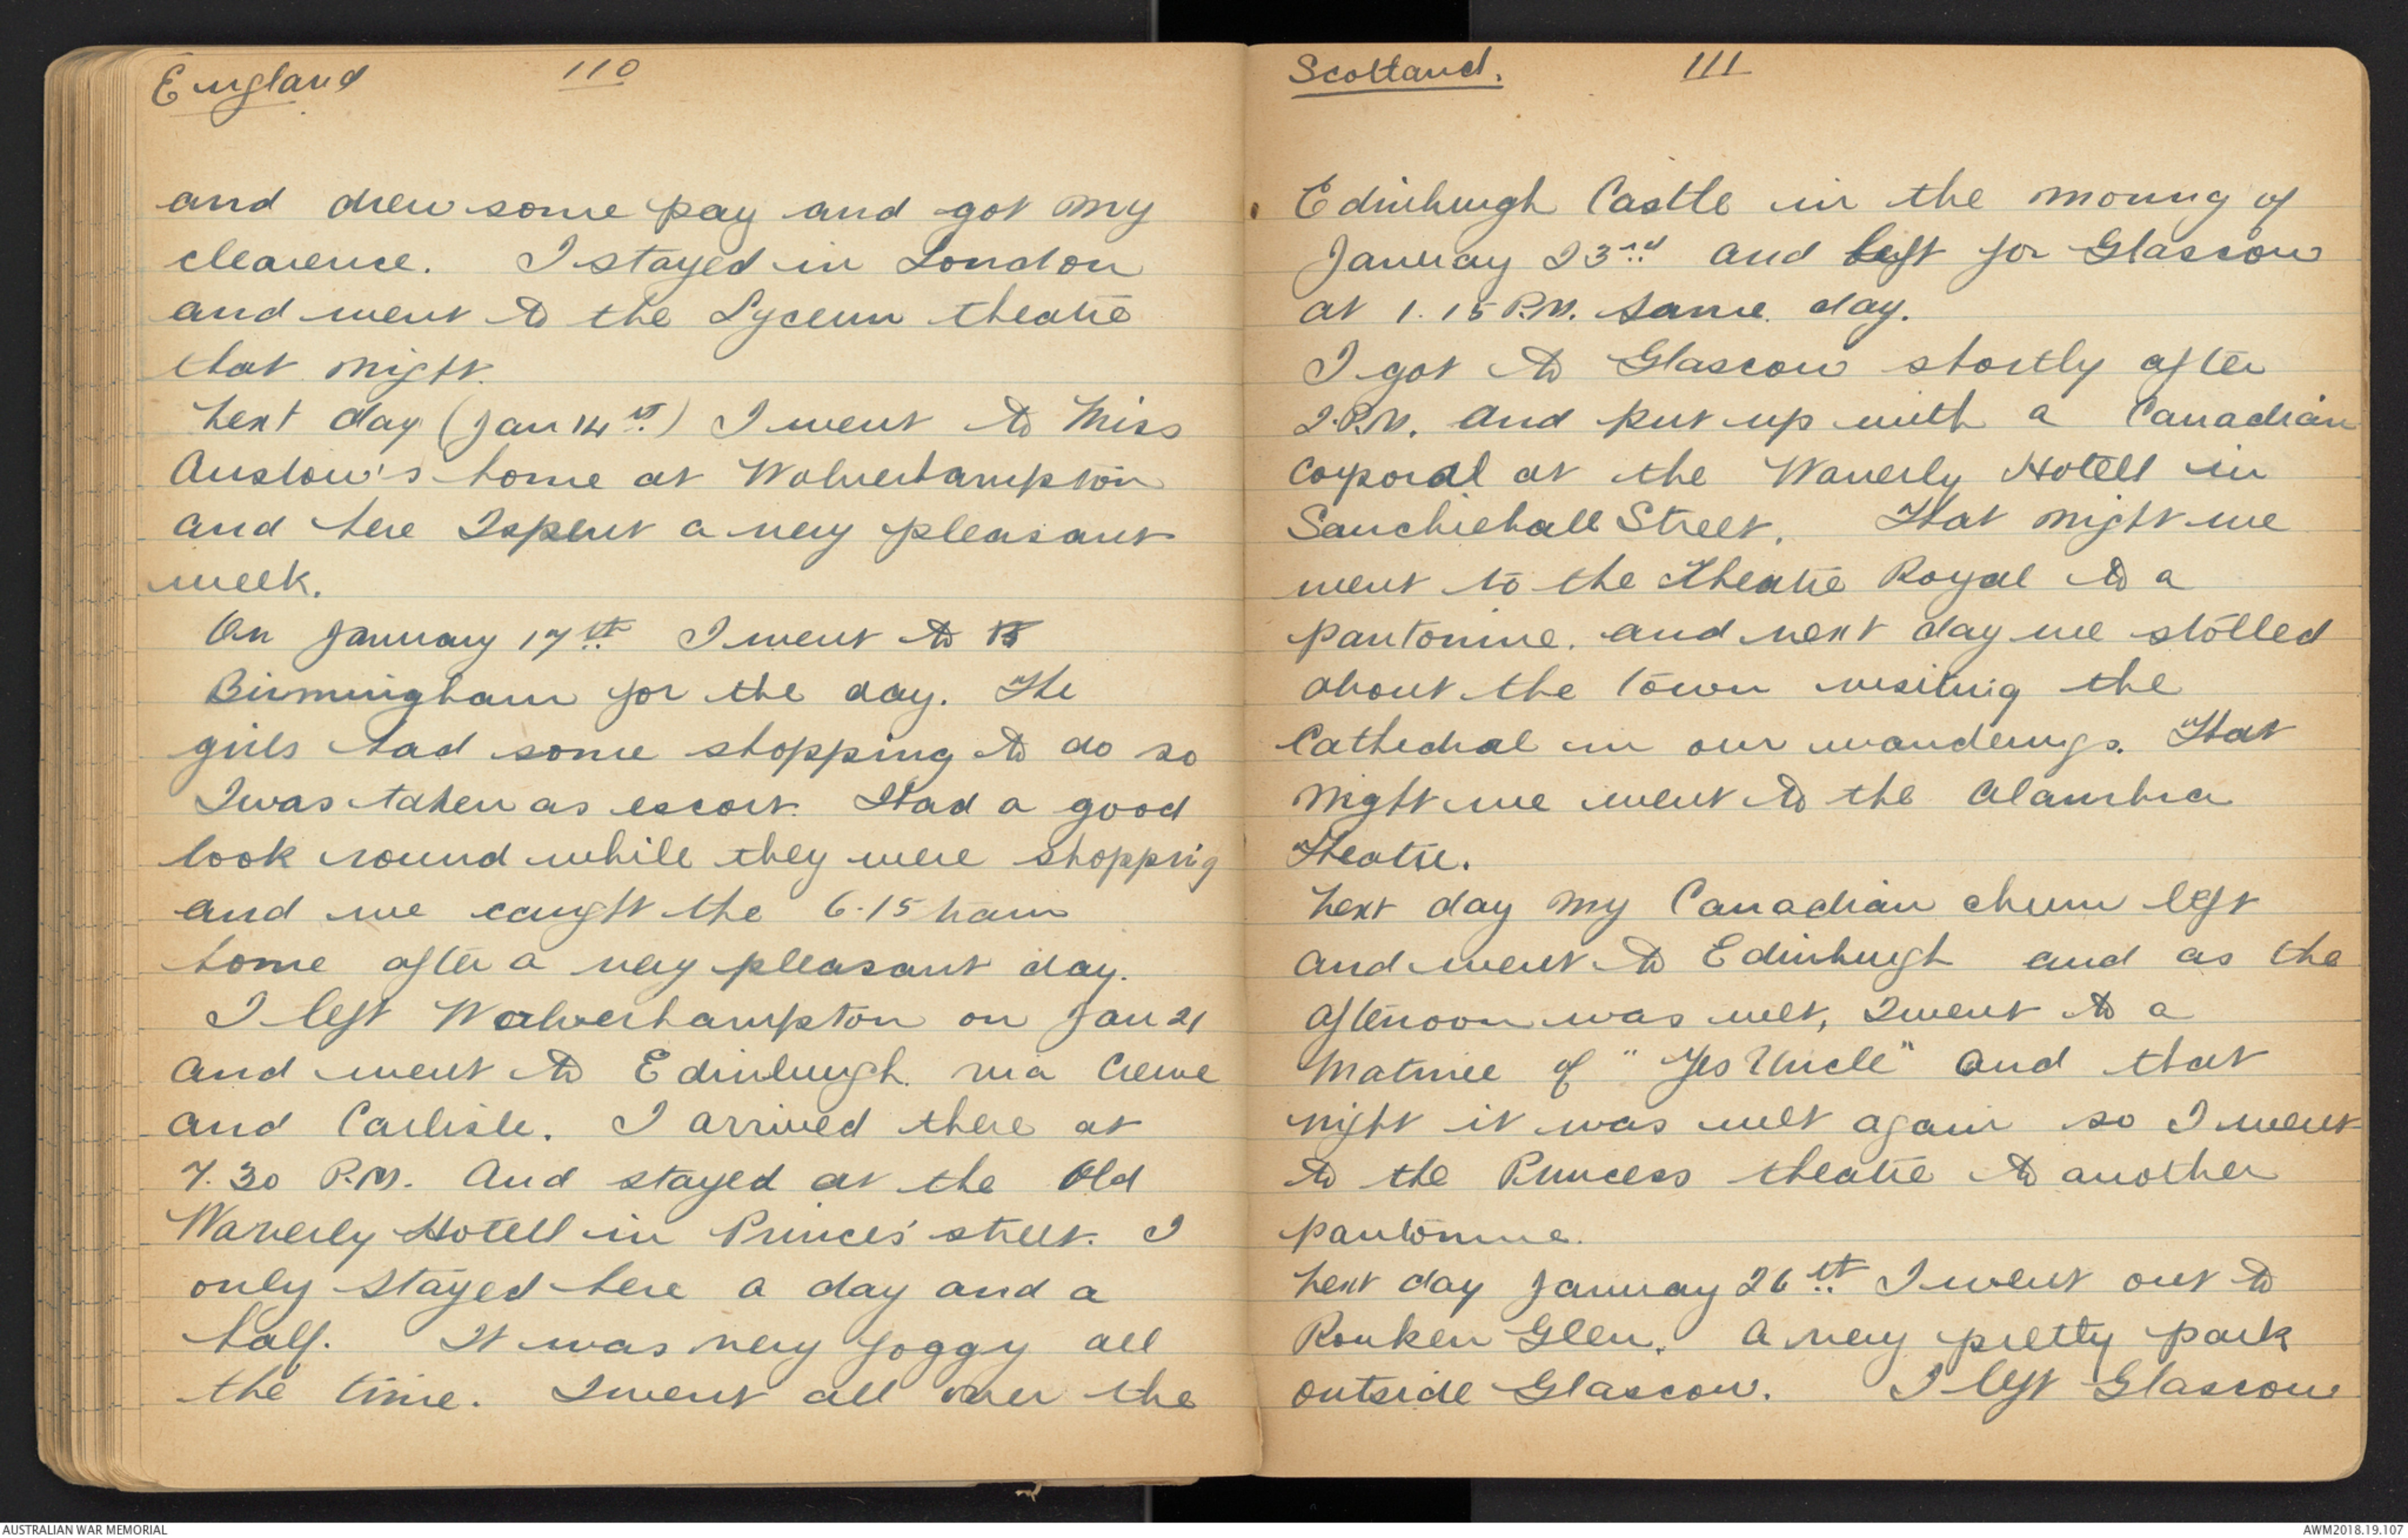 England 110
and drew some pay and got my
clearence. I stayed in London
and went to the Lyceum theatre
that night.
Next day (Jan 14th) I went to Miss
Anslow's home at Wolverhampton
and here I spent a very pleasant
week.
On January 17th I went to B
Birmingham for the day. The
girls had some shopping to do so
I was taken as escort. Had a good
look round while they were shopping
and we caught the 6.15 train
home after a very pleasant day.
I left Wolverhampton on Jan 21
and went to Edinburgh via Crewe
and Carlisle. I arrived there at
7.30 P.M. And stayed at the Old
Waverly Hotell in Princes' street. I
only stayed here a day and a
half. It was very foggy all
the time. I went all over the
Scotland. 111
Edinburgh Castle in the morning of
January 23rd and left for Glascow
at 1.15 P.M. same day.
I got to Glascow shortly after
2.P.M. and put up with a Canadian
corporal at the Waverly Hotell in
Sauchiehall Street. That night we
went to the Theatre Royal to a
pantomine. and next day we stolled
about the town visiting the
Cathedral in our wanderings. That
night we went to the Alambra
Theatre.
Next day my Canadian chum left
and went to Edinburgh and as the
afternoon was wet, I went to a
Matinee of "Yes Uncle" and that
night it was wet again so I went
to the Princess theatre to another
pantomine.
Next day January 26th I went out to
Rouken Glen. A very pretty park
outside Glascow. I left Glascow
AUSTRALIAN WAR MEMORIAL
AWM2018.19.107